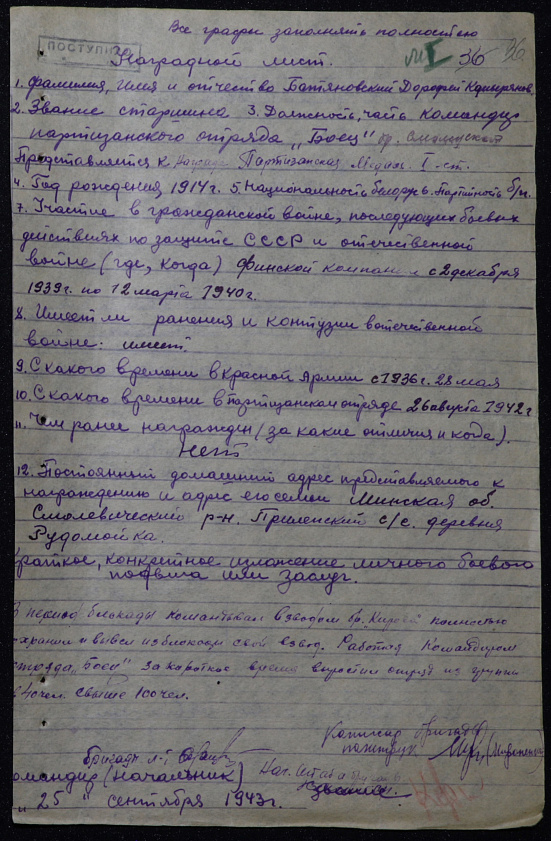 Все графы заполнять полностью
ПОСТУПИЛО
№ I 36 36
Наградной лист.
1. Фамилия, Имя и отчество Батяновский Дорофей
2. Звание старшина 3. Должность, часть командир
партизанского отряда „Боец" бр. Смолевич
Представляется к Партизанская Медаль I-ст.
4. Год рождения 1914г. 5. Национальность белорус 6. Партийность б/п
7. Участие в гражданской войне, последующих боевых
действиях по защите СССР и отечественной
войне (где, когда) Финской компании с 2 декабря
1939г. по 12 марта 1940г.
8. Имеет ли ранения и контузии в отечественной
войне: имеет.
9. С какого времени в Красной Армии с 1936г. 28 мая
10. С какого времени в партизанском отряде 26 августа 1942г
11. Чем ранее награжден (за какие отличия и когда).
Нет
12. Постоянный домашний адрес представляемого к
награждению и адрес его семьи Минская об.
Смолевический р-н. Прилепский с/с. деревня
Рудомойка.
Краткое, конкретное изложение личного боевого
подвига или заслуг.
В период блокады командывал взводом бр. „Кирова" полностью
сохранил и вывел из блокады свой взвод. Работая Командиром
отряда „Боец" за короткое время вырастил отряд из группы
в 40 чел. свыше 100 чел.
Комиссар бригады
политрук
Бригады л-т
Командир (Начальник) Нач. Штаба
„25" сентября 1943г.